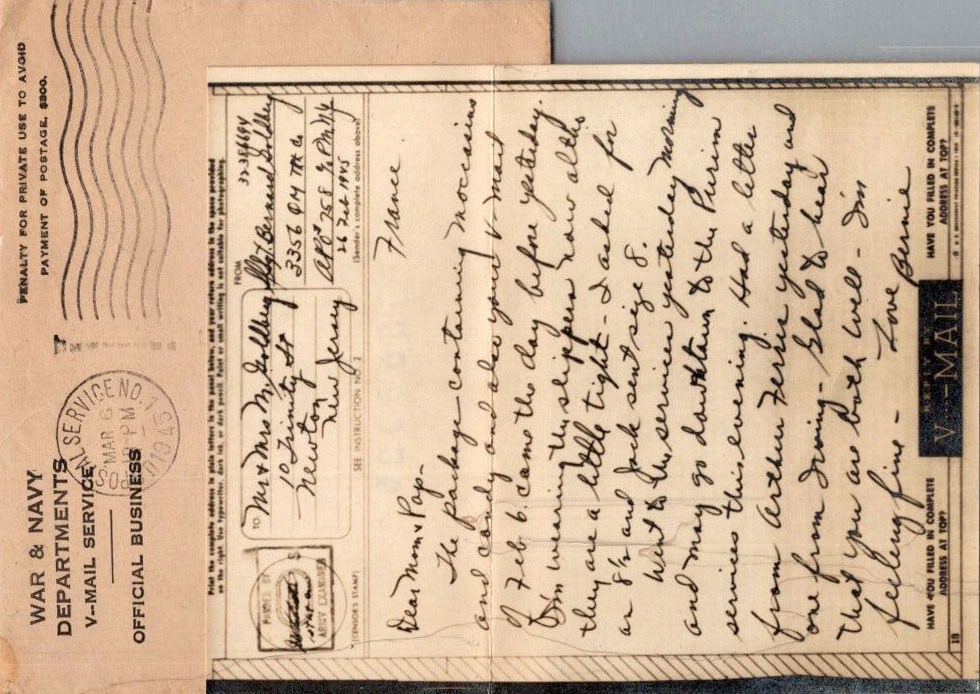 PENALTY FOR PRIVATE USE TO AVOID
PAYMENT OF POSTAGE, $300.
WAR & NAVY
DEPARTMENTS
V-MAIL SERVICE
OFFICIAL BUSINESS
U.S. POSTAL SERVICE NO. 1
MAR 6
12 PM
1945
Print the complete address in plain letters in the panel below, and your return address in the space provided
on the right. Use typewriter, dark ink, or dark pencil. Faint or small writing is not suitable for photographing.
TO
Mr & Mrs M. Goldberg
10 Trinity St
Newton
New Jersey
FROM
32386694
Sgt Bernard Goldberg
3356 QM Trk Co
APO 758 % PM NY
26 Feb 1945
(Sender's complete address above)
PASSED BY
ARMY EXAMINER
(CENSOR'S STAMP)
SEE INSTRUCTION NO. 2
France
Dear Mom & Pop-
The package containing moccasins
and candy and also your V-mail
of Feb 6. came the day before yesterday.
I'm wearing the slippers now altho
they are a little tight - I asked for
an 8½ and Jack sent size 8.
Went to the services yesterday morning
and may go downtown to the Purim
services this evening. Had a letter
from Arthur Ferris yesterday and
one from Irving - Glad to hear
that you are both well - I'm
feeling fine - Love Bernie
HAVE YOU FILLED IN COMPLETE
ADDRESS AT TOP?
REPLY BY
V···—MAIL
HAVE YOU FILLED IN COMPLETE
ADDRESS AT TOP?